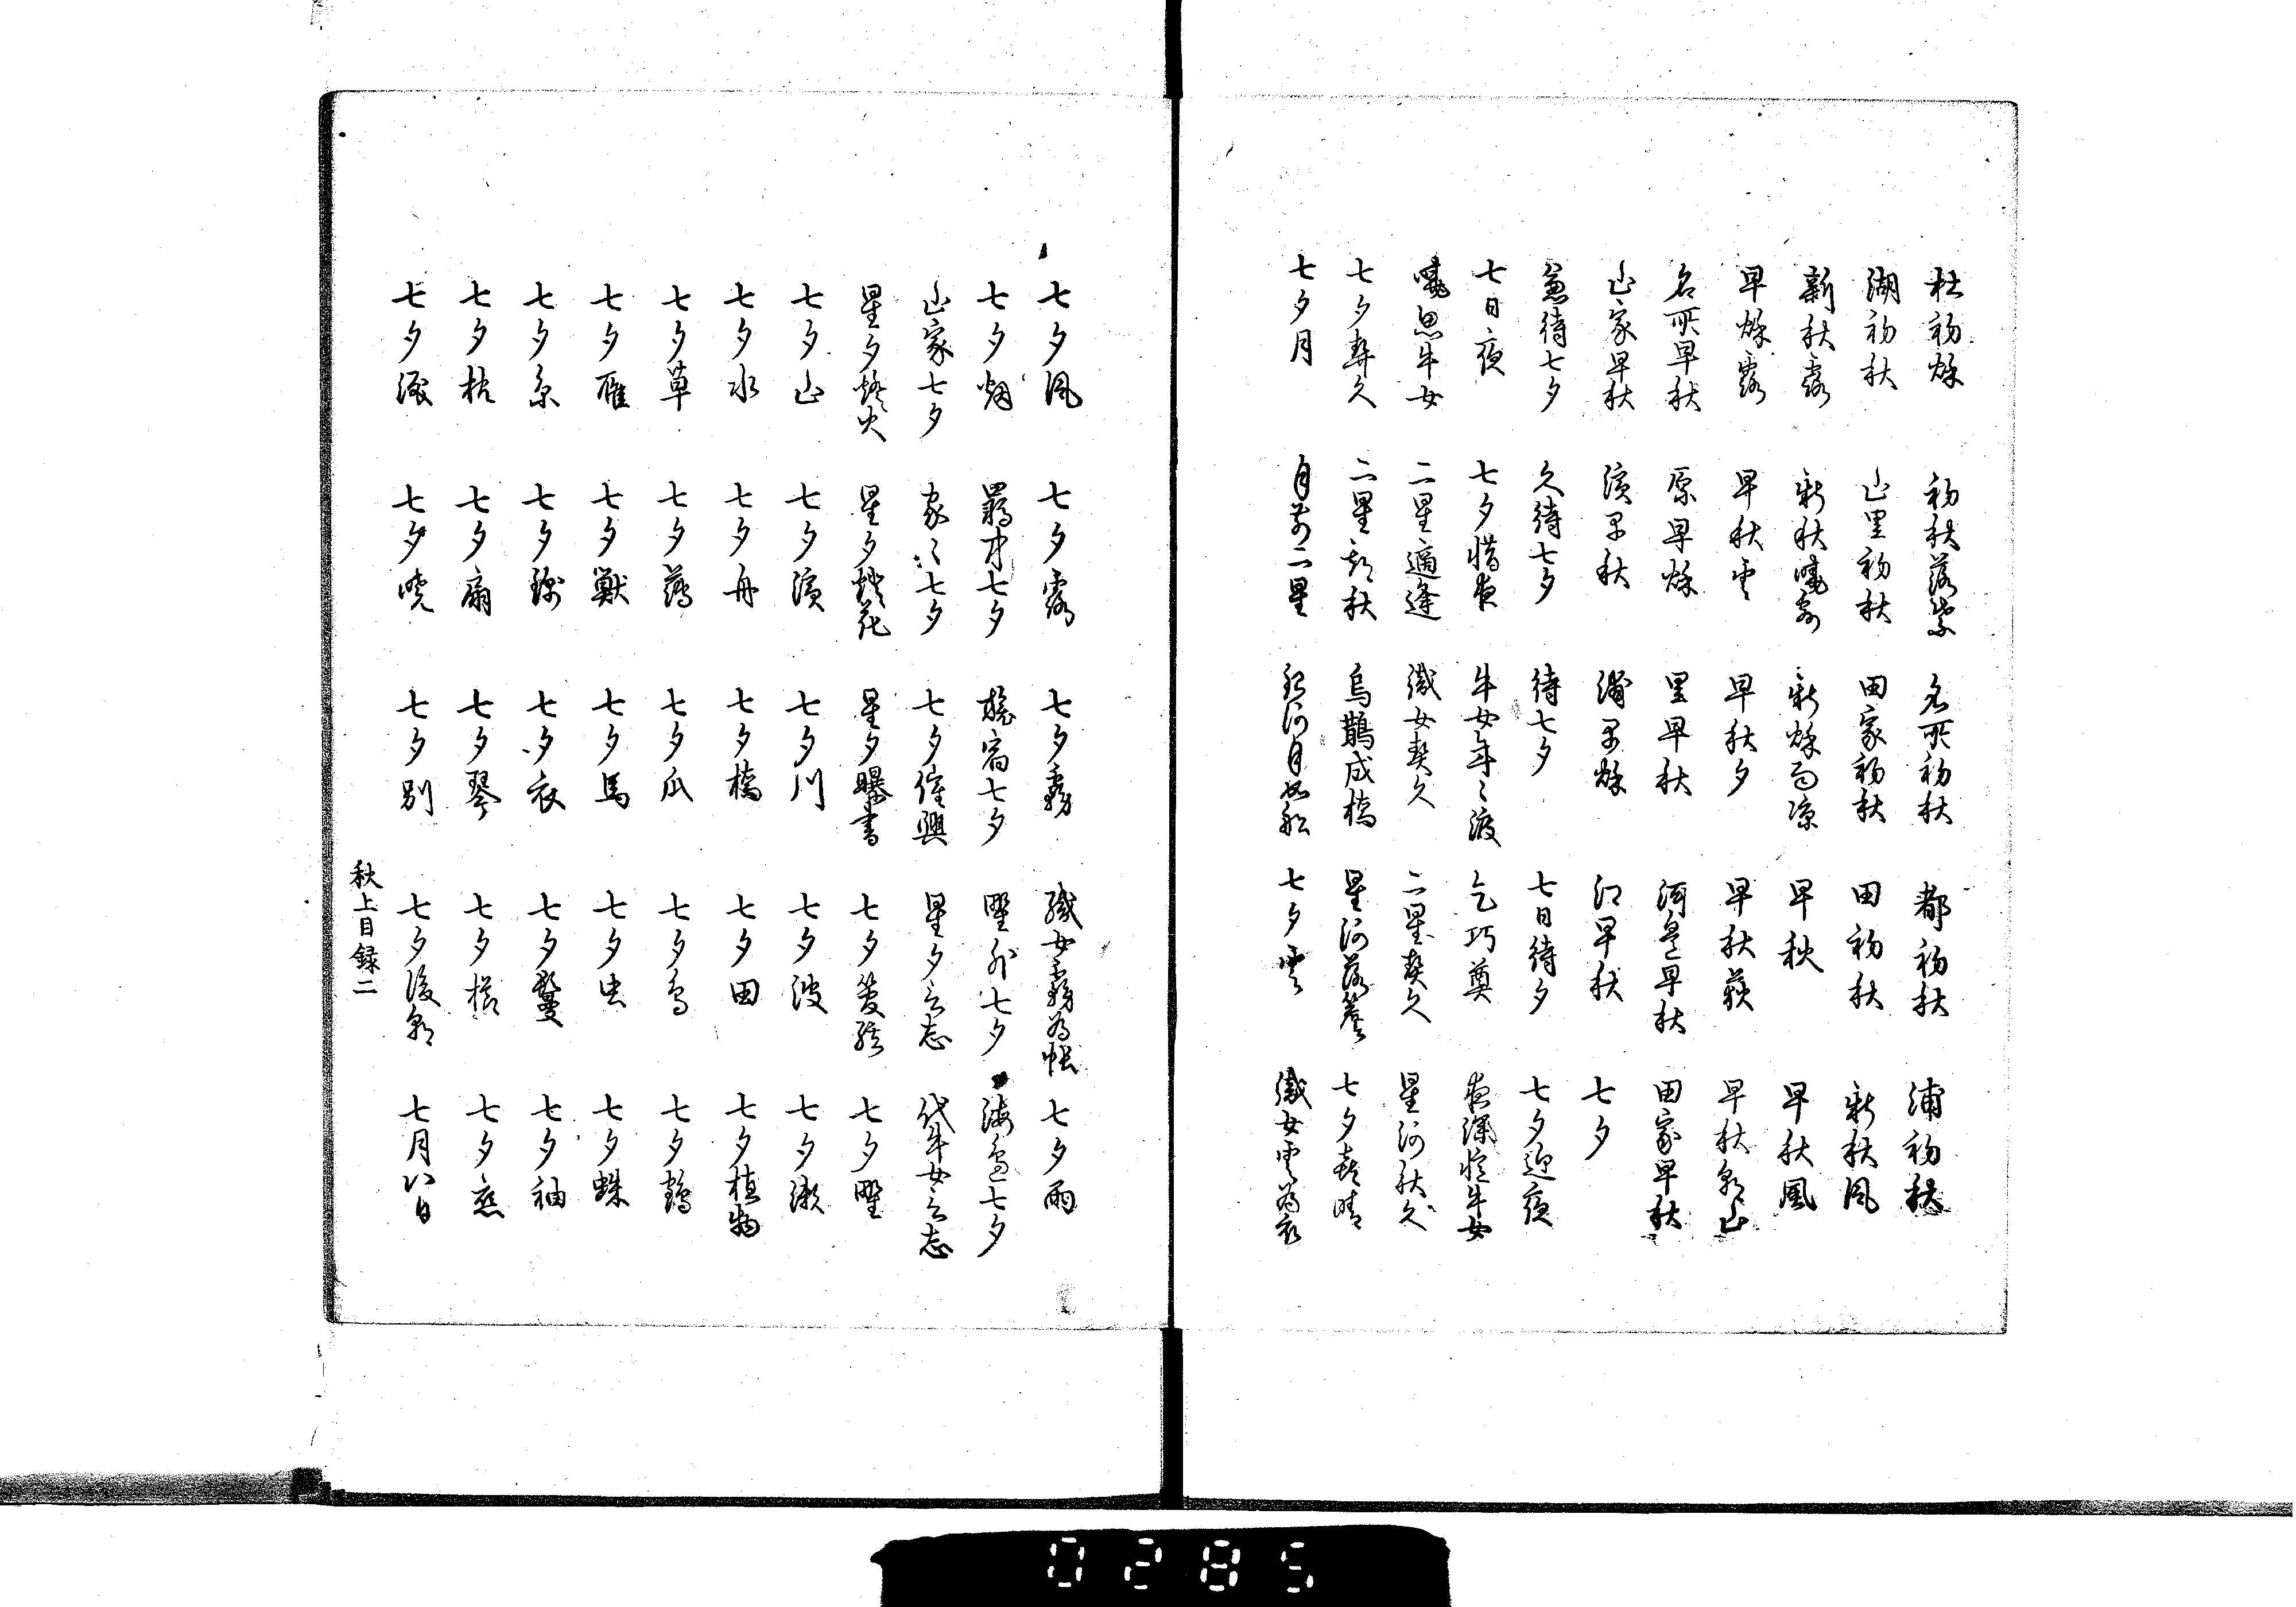 杜初秌 初秋落葉 名所初秋 都初秋 浦初秋
湖初秋 山里初秋 田家初秋 田初秋 新秋風
新秋露 新秋暁露 新秌雨凉 早秋 早秋風
早秌露 早秋雲 早秋夕 早秋荻 早秋朝山
名所早秋 原早秌 里早秋 河邊早秋 田家早秋
山家早秋 濱早秋 浦早秌 江早秋 七夕
兼待七夕 久待七夕 待七夕 七日待夕 七夕迎夜
七日夜 七夕惜夜 牛女年々渡 乞巧奠 夜深憶牛女
暁思牛女 二星適逢 織女契久 二星契久 星河秋久
七夕契久 二星契秋 烏鵲成橋 星河落簷 七夕喜晴
七夕月 月前二星 銀河月如船 七夕雲 織女雲為衣
七夕風 七夕露 七夕霧 織女霧為帳 七夕雨
七夕烟 羇中七夕 旅宿七夕 野外七夕 海邊七夕
山家七夕 家々七夕 七夕催興 星夕言志 代牛女言志
星夕燈火 星夕燈花 星夕曝書 七夕管絃 七夕野
七夕山 七夕濱 七夕川 七夕波 七夕瀬
七夕水 七夕舟 七夕橋 七夕田 七夕植物
七夕草 七夕薄 七夕瓜 七夕鳥 七夕鶴
七夕雁 七夕獣 七夕馬 七夕虫 七夕蛛
七夕糸 七夕 七夕衣 七夕鬘 七夕袖
七夕枕 七夕扇 七夕琴 七夕 七夕恋
七夕 七夕暁 七夕別 七夕後朝 七月八日
秋上目録二
0285